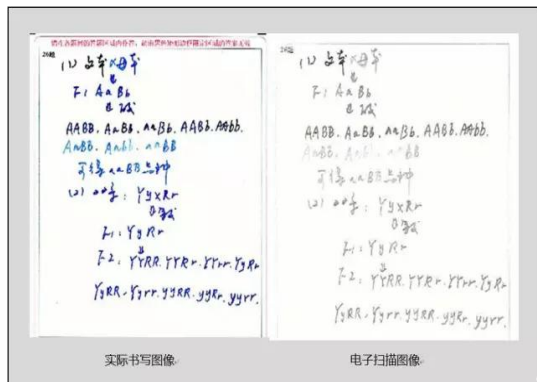 请在各题目的答题区域内作答，超出黑色矩形边框限定区域的答案无效
26题
(1) 父本 × 母本
F1 AaBb
AABB. AaBb. aaBb. AABb. AAbb.
AaBB. Aabb. aabb
可得 aaBB 品种
(2) : YyxRr
F1: YyRr
F2: YYRR. YYRr. YYrr. YyRr
YyRR. Yyrr. yyRR. yyRr. yyrr.
实际书写图像
26题
(1) 父本 × 母本
F1 AaBb
AABB. AaBb. aaBb. AABb. AAbb.
AaBB. Aabb. aabb
可得 aaBB 品种
(2) : YyxRr
F1: YyRr
F2: YYRR. YYRr. YYrr. YyRr
YyRR. Yyrr. yyRR. yyRr. yyrr.
电子扫描图像